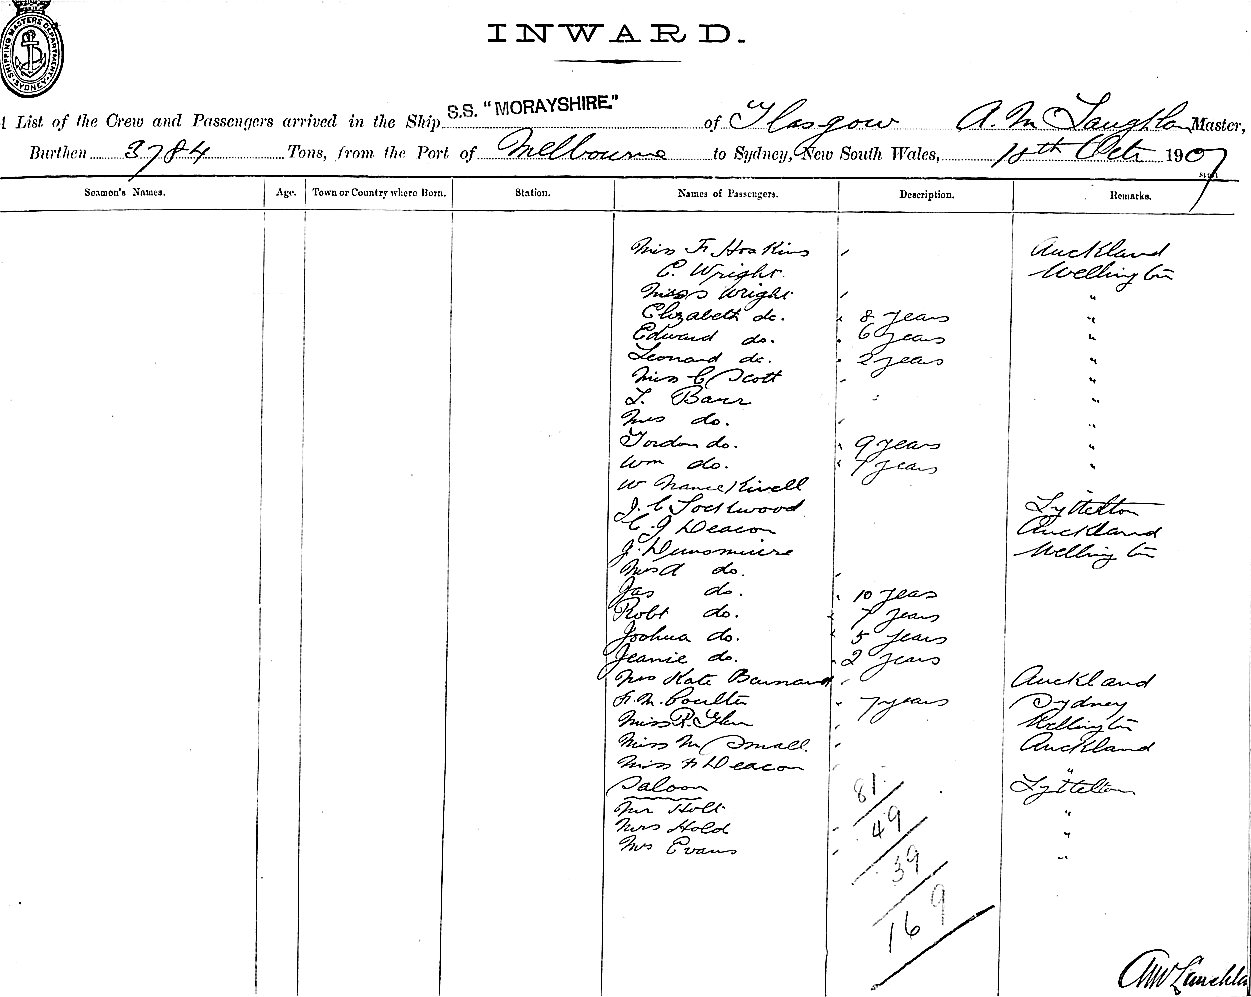 SHIPPING MASTERS DEPARTMENT SYDNEY
INWARD.
A List of the Crew and Passengers arrived in the Ship S.S. "MORAYSHIRE." of Glasgow A. McLaughlan Master,
Burthen 3784 Tons, from the Port of Melbourne to Sydney, New South Wales, 18th Oct 1907
Seamen's Names. Age. Town or Country where Born. Station. Names of Passengers. Description. Remarks.
Miss F. Hoskins ' Auckland
C. Wright Wellington
Miss Wright ' "
Elizabeth do. " 8 years "
Edward do. " 6 years "
Leonard do. " 2 years "
Miss C Scott "
Barr "
Mrs do. "
Gordon do. 9 years "
Wm do. " 7 years "
W
J. C Lockwood Lyttelton
C. J Deacon Auckland
J. Dunsmuire Wellington
Mrs A do.
Jas do. " 10 years
Robt do. " 7 years
Joshua do. " 5 years
Jeanie do. " 2 years
Mrs Kate Barnard ' Auckland
F. M. Coulter " 7 years Sydney
Miss R. Glen Wellington
Miss M Small. ' Auckland
Miss F Deacon "
Saloon 81 Lyttelton
Mr Holt "
Mrs Hold 49 "
Mrs Evans "
39
169